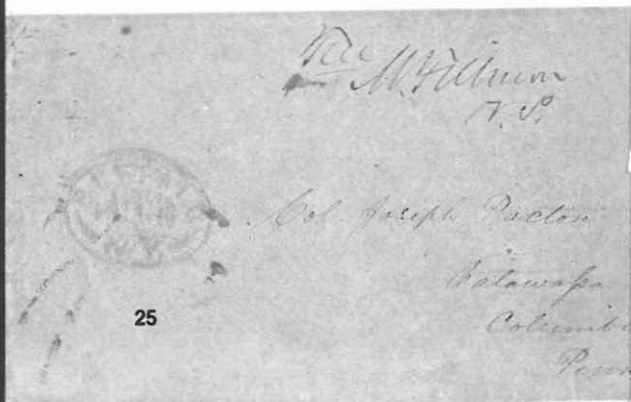 Free
M. Fillmore
V. P.
N.Y.
Col. Joseph Paxton
Catawissa
Columbi
Penn
25